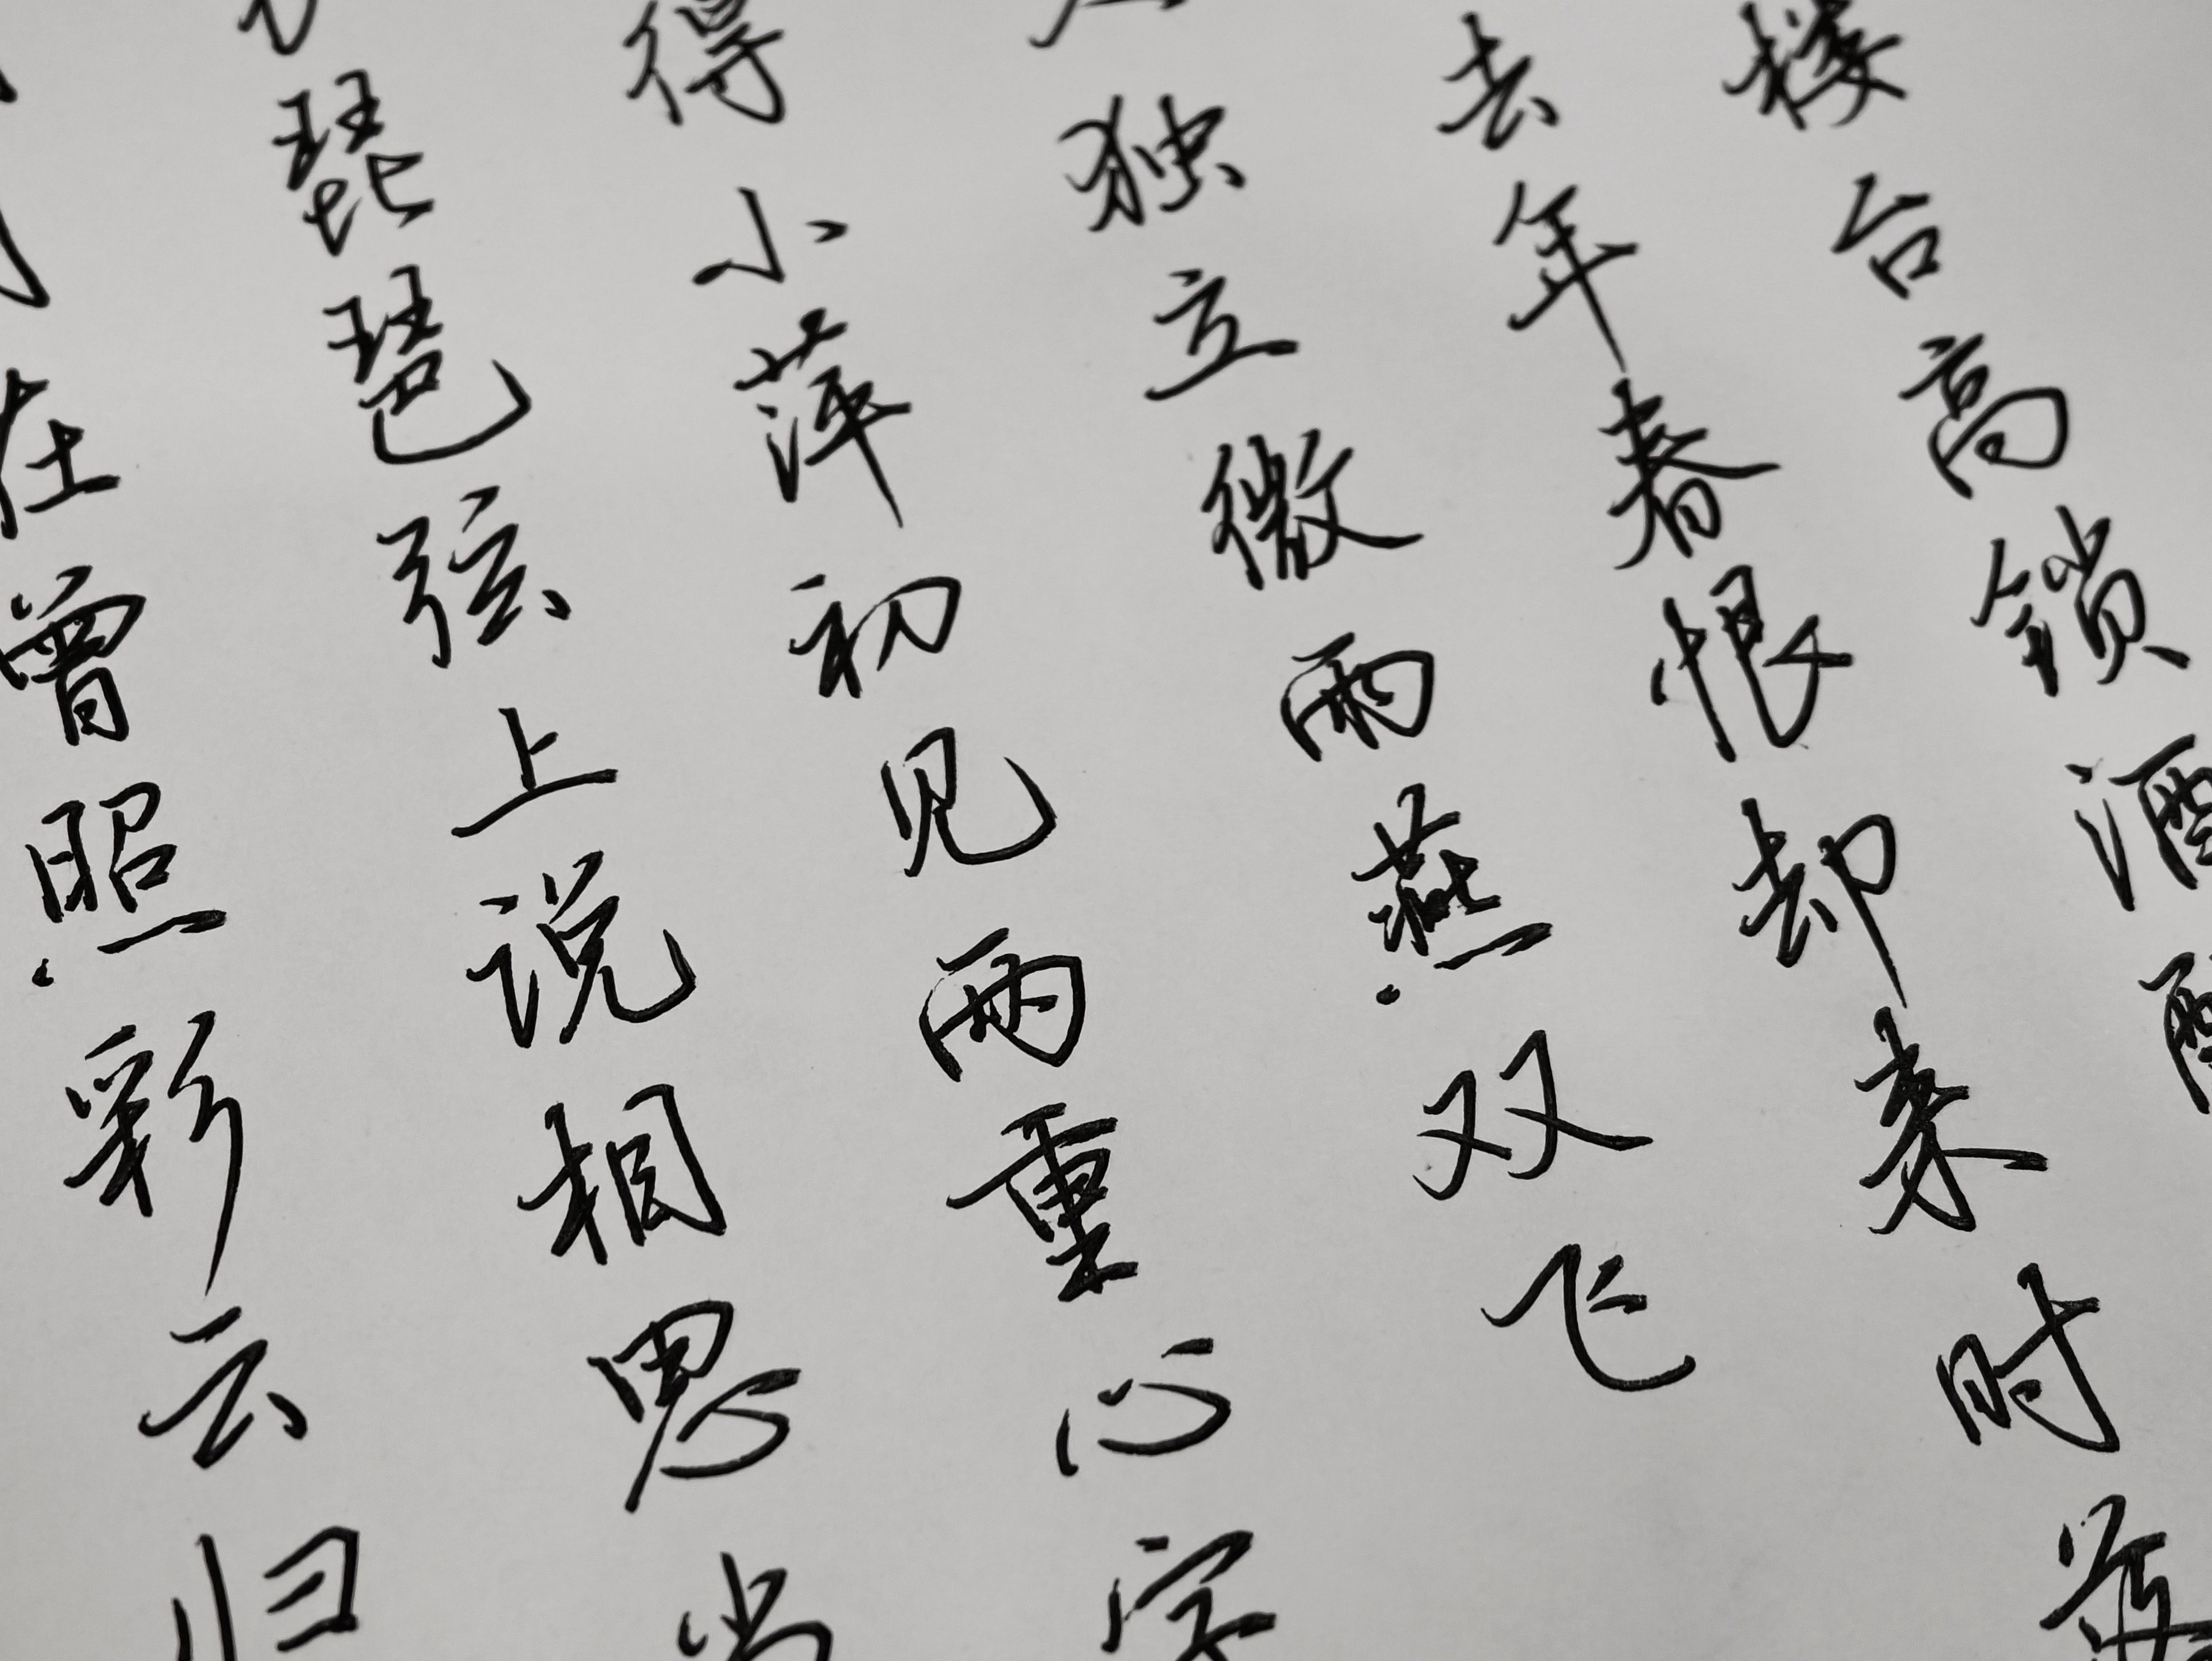 楼台高锁酒醒
去年春恨却来时落
独立微雨燕双飞
得小萍初见两重心字
琵琶弦上说相思当
在曾照彩云归